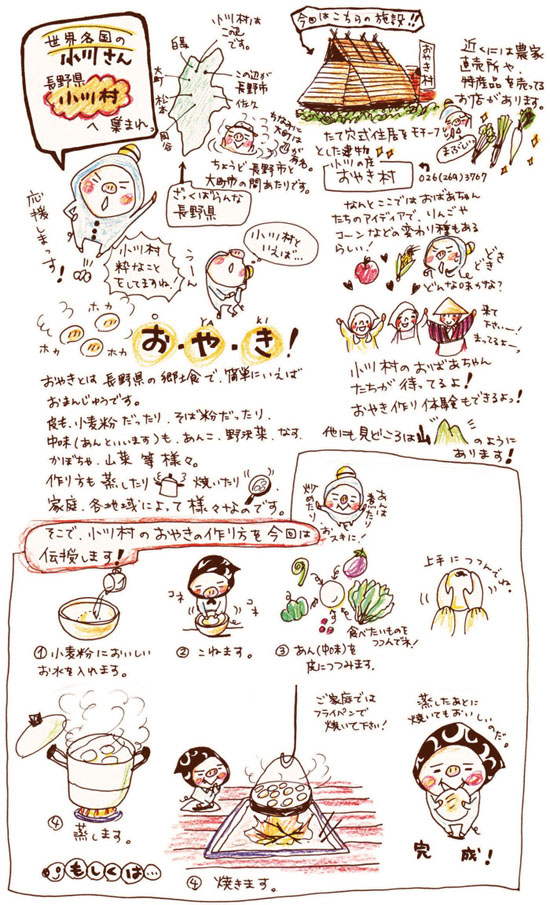 世界各国の
小川さん
長野県
小川村
へ 集まれっ
小川村は
この辺
です。
白馬
大町
松本
この辺が
長野市
佐久
ちなみに
大町は
ちょうど 長野市と
大町市の間あたりです。
ざっくばらんな
長野県
応援しまっす!
小川村
粋なこと
をしてますね!
うーん
小川村と
いえば…
今回はこちらの施設!!
おやき村
たて穴式住居をモチーフ
とした建物
小川の庄
おやき村
026(269)3767
近くには農家
直売所や、
特産品を売ってる
お店があります。
なんとここではおばあちゃん
たちのアイディアで、りんごや
コーンなどの変わり種もある
らしい!
どきどき
どんな味かな?
来て
下さいー!
まってるよー
小川村のおばあちゃん
たちが待ってるよ!
おやき作り体験もできるよっ!
他にも見どころは山のように
あります!
ホカ
ホカ
ホカ
お・や・き!
おやきとは長野県の郷土食で、簡単にいえば
おまんじゅうです。
皮も、小麦粉だったり、そば粉だったり、
中味(あんといいます)も、あんこ、野沢菜、なす、
かぼちゃ、山菜 等 様々。
作り方も 蒸したり 焼いたり
家庭、各地域によって 様々なのです。
そこで、小川村のおやきの作り方を今回は
伝授します!
あんは
煮たり
炒めたり
おスキに!
①小麦粉においしい
お水を入れます。
コネ
コネ
②こねます。
食べたいものを
つつんでネ!
③あん(中味)を
皮につつみます。
上手につつんでネ。
④蒸します。
もしくは…
ご家庭では
フライパンで
焼いて下さい!
④焼きます。
蒸したあとに
焼いてもおいしいのだ。
完成!